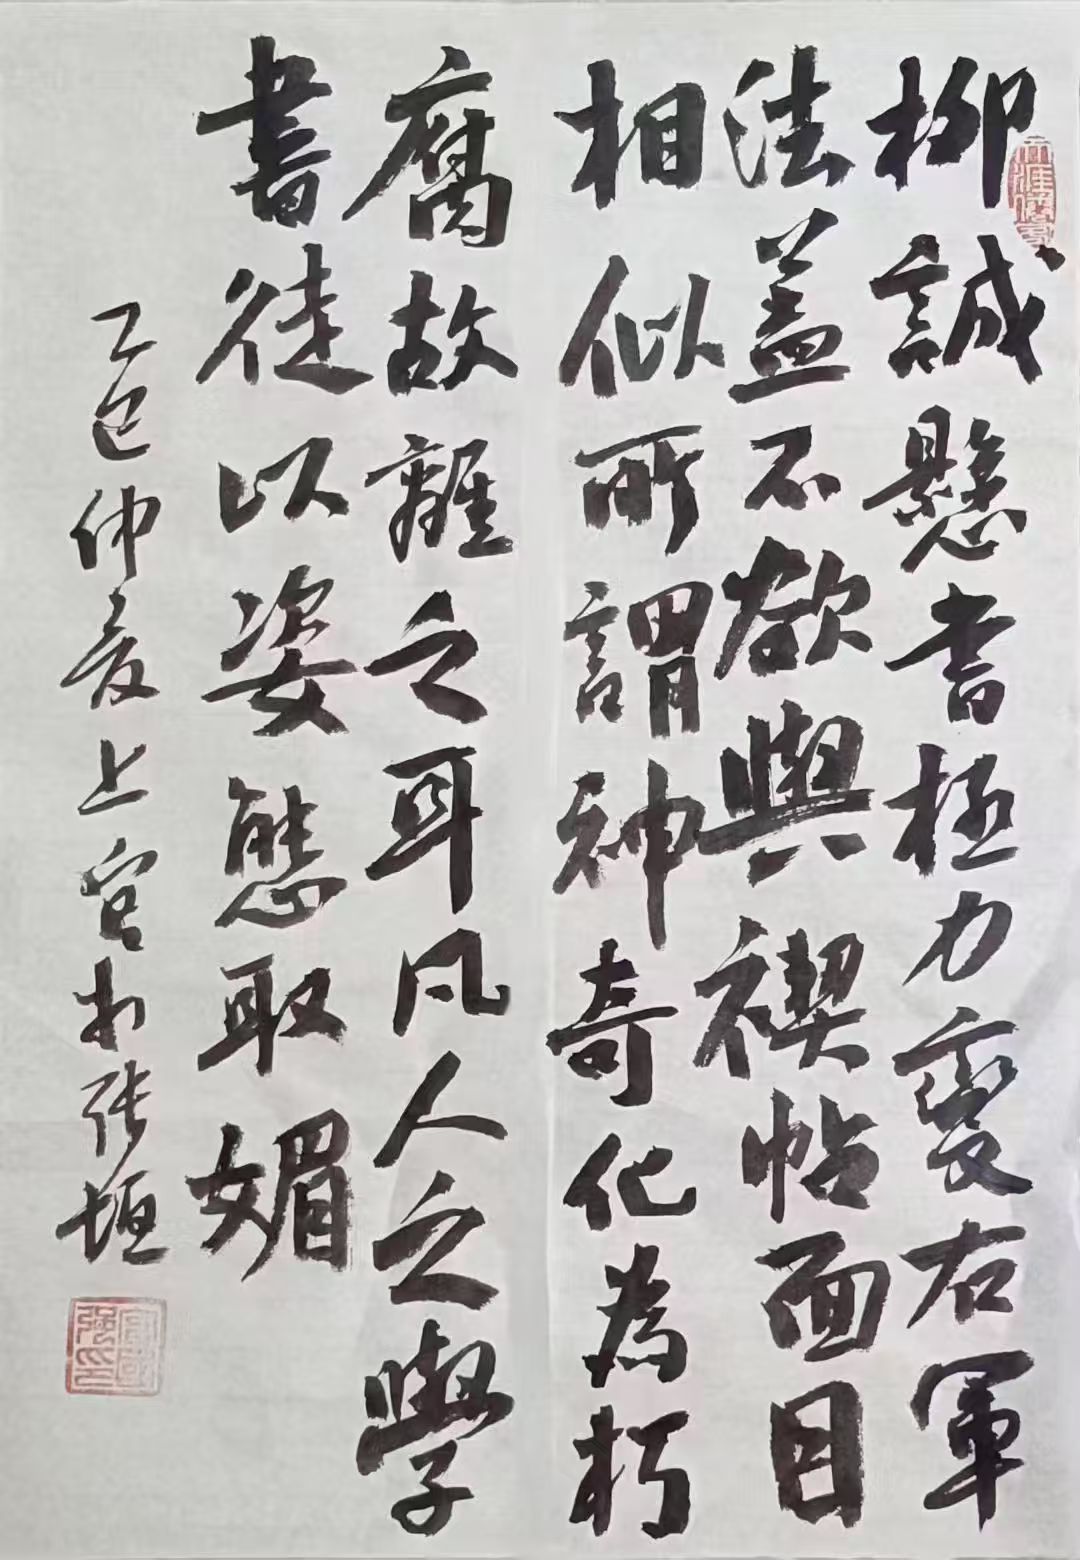 柳誠懸书極力變右軍
法蓋不欲與禊帖面目
相似所謂神奇化為朽
腐故離之耳凡人之學
書徒以姿態取媚
乙巳仲夏上官於張垣